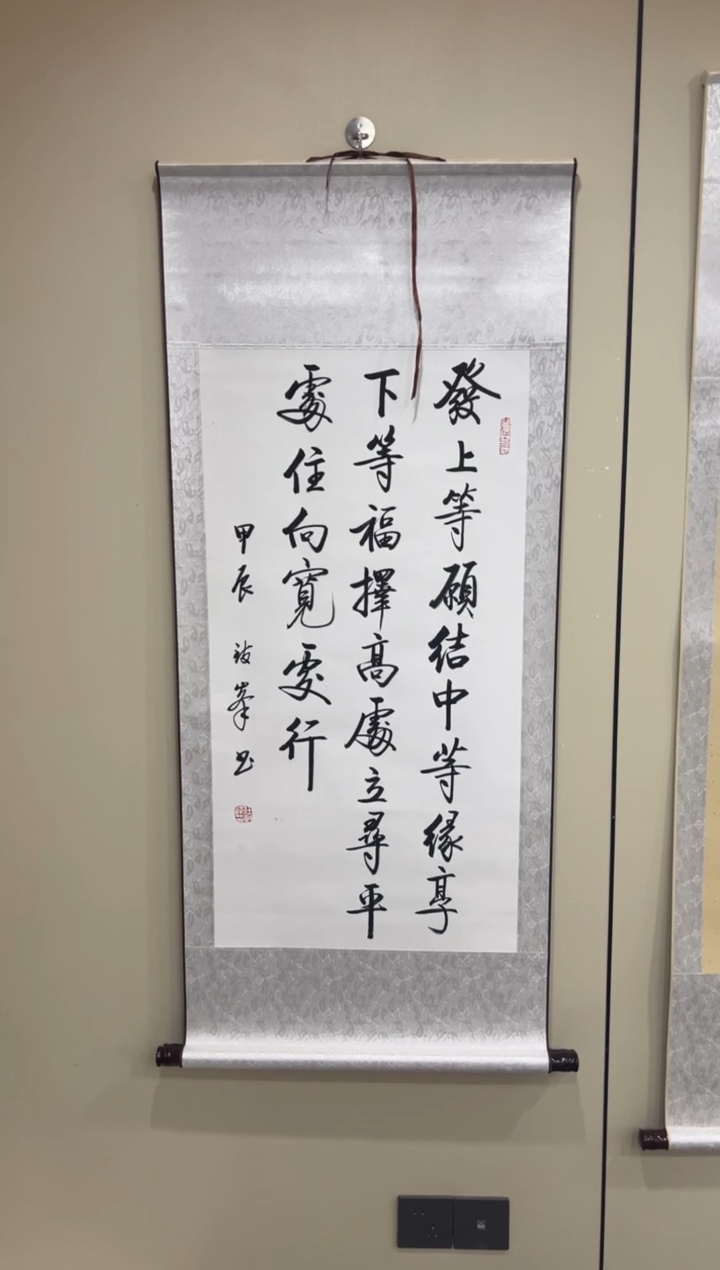 發上等願結中等緣享
下等福擇高處立尋平
處住向寬處行
甲辰 峯書